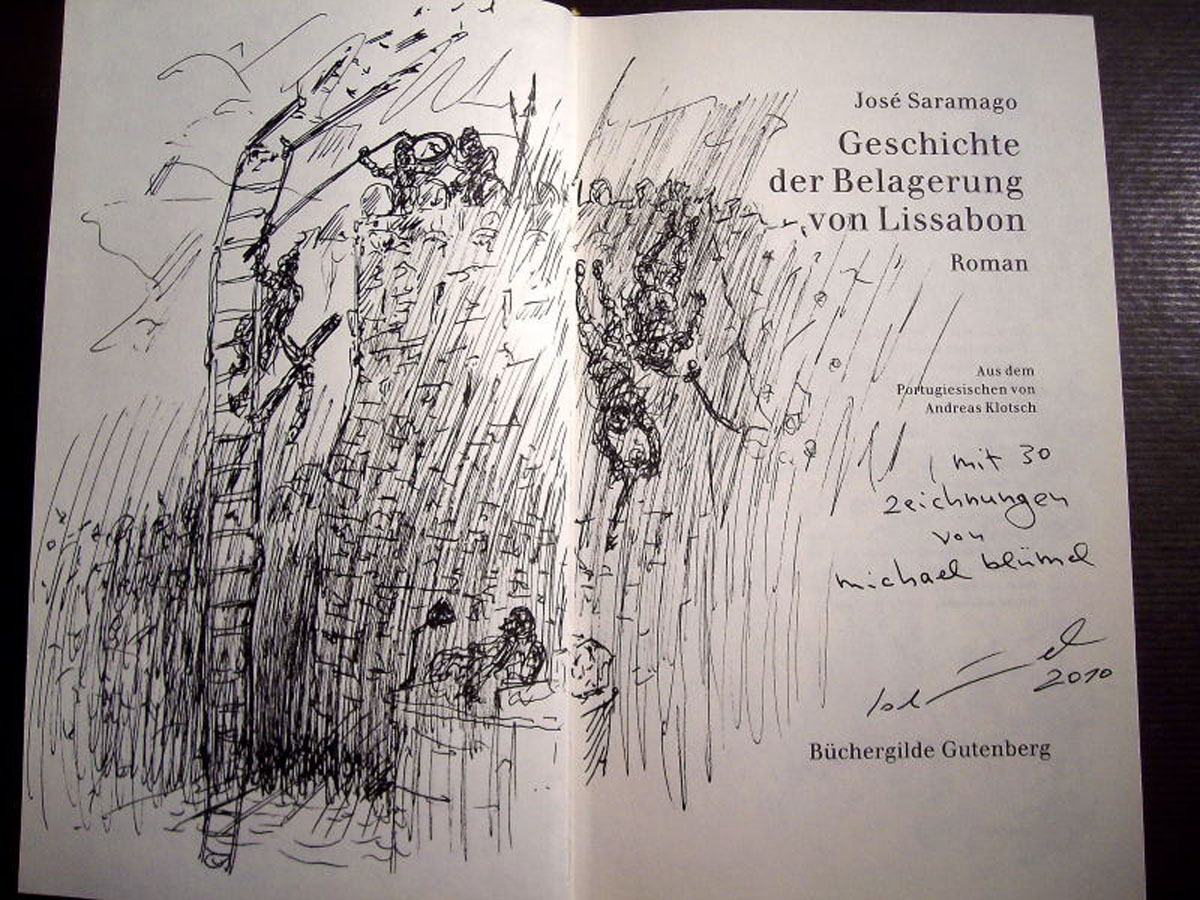 José Saramago
Geschichte
der Belagerung
von Lissabon
Roman
Aus dem
Portugiesischen von
Andreas Klotsch
mit 30
zeichnungen
von
michael blümel
2010
Büchergilde Gutenberg